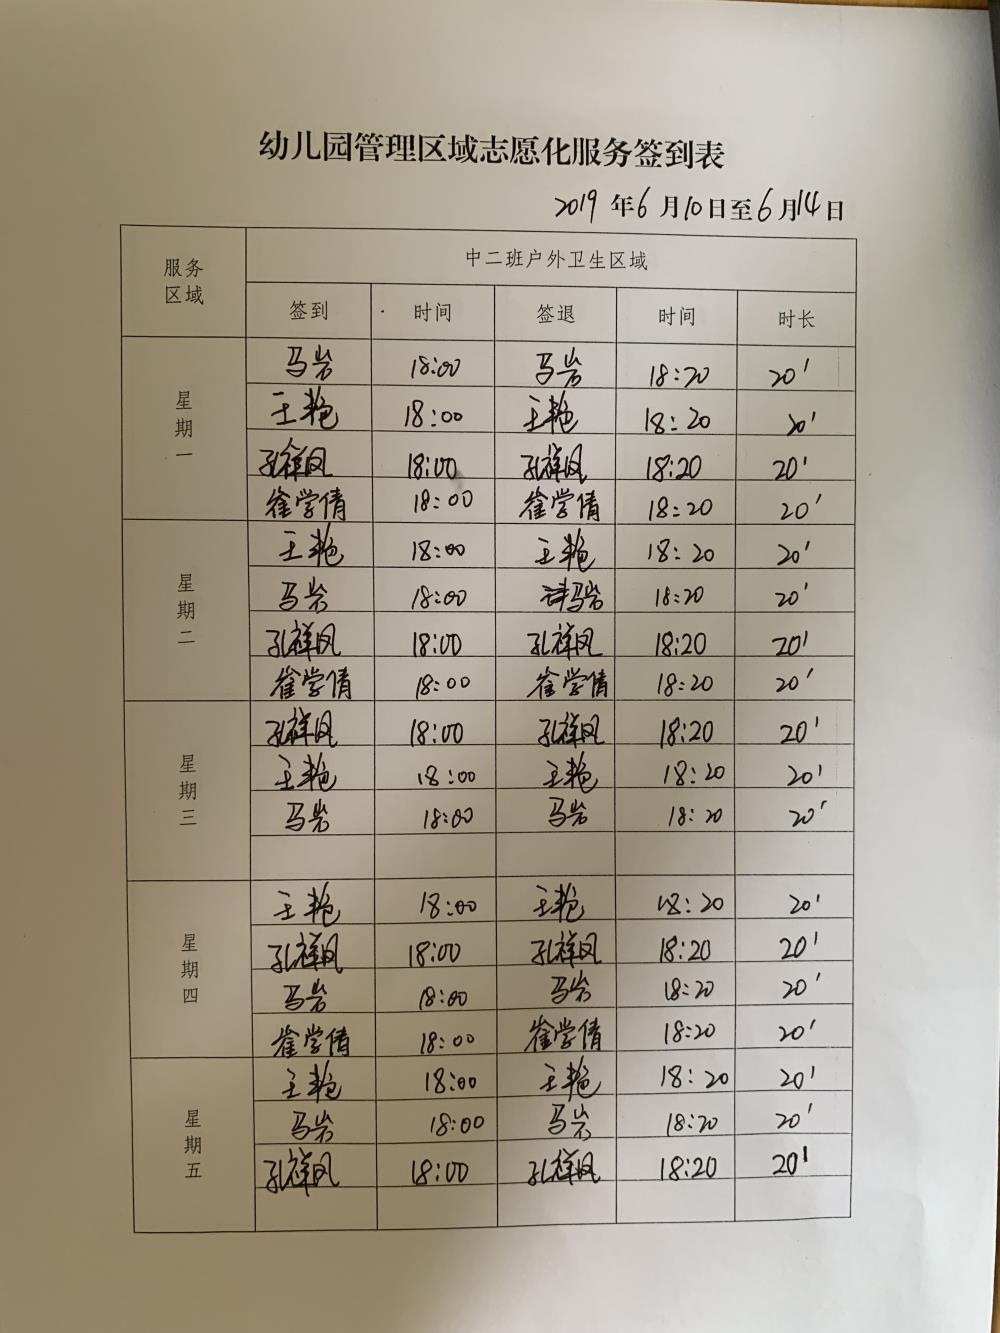 幼儿园管理区域志愿化服务签到表
2019 年 6 月 10 日至 6 月 14 日
服务区域 中二班户外卫生区域
签到 时间 签退 时间 时长
星期一
马岩 18:00 马岩 18:20 20'
王艳 18:00 王艳 18:20 20'
孔祥凤 18:00 孔祥凤 18:20 20'
崔学倩 18:00 崔学倩 18:20 20'
星期二
王艳 18:00 王艳 18:20 20'
马岩 18:00 马岩 18:20 20'
孔祥凤 18:00 孔祥凤 18:20 20'
崔学倩 18:00 崔学倩 18:20 20'
星期三
孔祥凤 18:00 孔祥凤 18:20 20'
王艳 18:00 王艳 18:20 20'
马岩 18:00 马岩 18:20 20'
星期四
王艳 18:00 王艳 18:20 20'
孔祥凤 18:00 孔祥凤 18:20 20'
马岩 18:00 马岩 18:20 20'
崔学倩 18:00 崔学倩 18:20 20'
星期五
王艳 18:00 王艳 18:20 20'
马岩 18:00 马岩 18:20 20'
孔祥凤 18:00 孔祥凤 18:20 20'